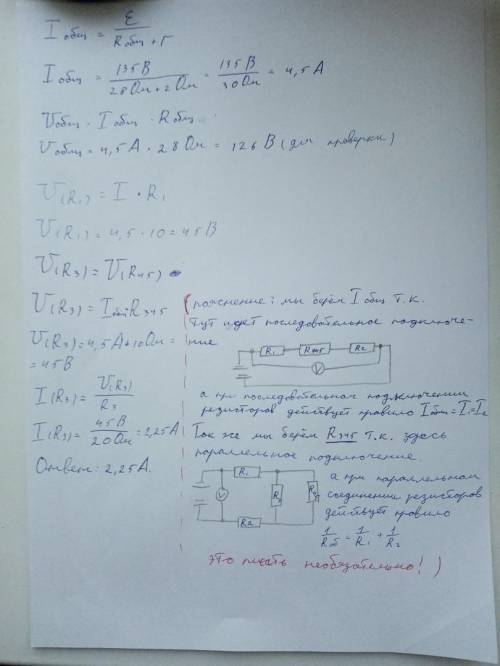 I общ = ε / (R общ + r)
I общ = 135 В / (28 Ом + 2 Ом) = 135 В / 30 Ом = 4,5 А
U общ · I общ · R общ
U общ = 4,5 А · 28 Ом = 126 В (для проверки)
U(R₁) = I · R₁
U(R₁) = 4,5 · 10 = 45 В
U(R3) = U(R45)
U(R3) = I общ R345
U(R3) = 4,5 А · 10 Ом =
= 45 В
I(R3) = U(R3) / R3
I(R3) = 45 В / 20 Ом = 2,25 А
Ответ: 2,25 А.
(пояснение: мы берём I общ т.к.
тут идет последовательное подключе-
ние
R₁ R345 R2
V
а при последовательном подключении
резисторов действует правило I общ = I₁ = I₂
Так же мы берём R345 т.к. здесь
параллельное подключение.
R₁
V R3
R2
а при параллельном
соединении резисторов
действует правило
1/Rоб = 1/R₁ + 1/R₂
это писать необязательно!)